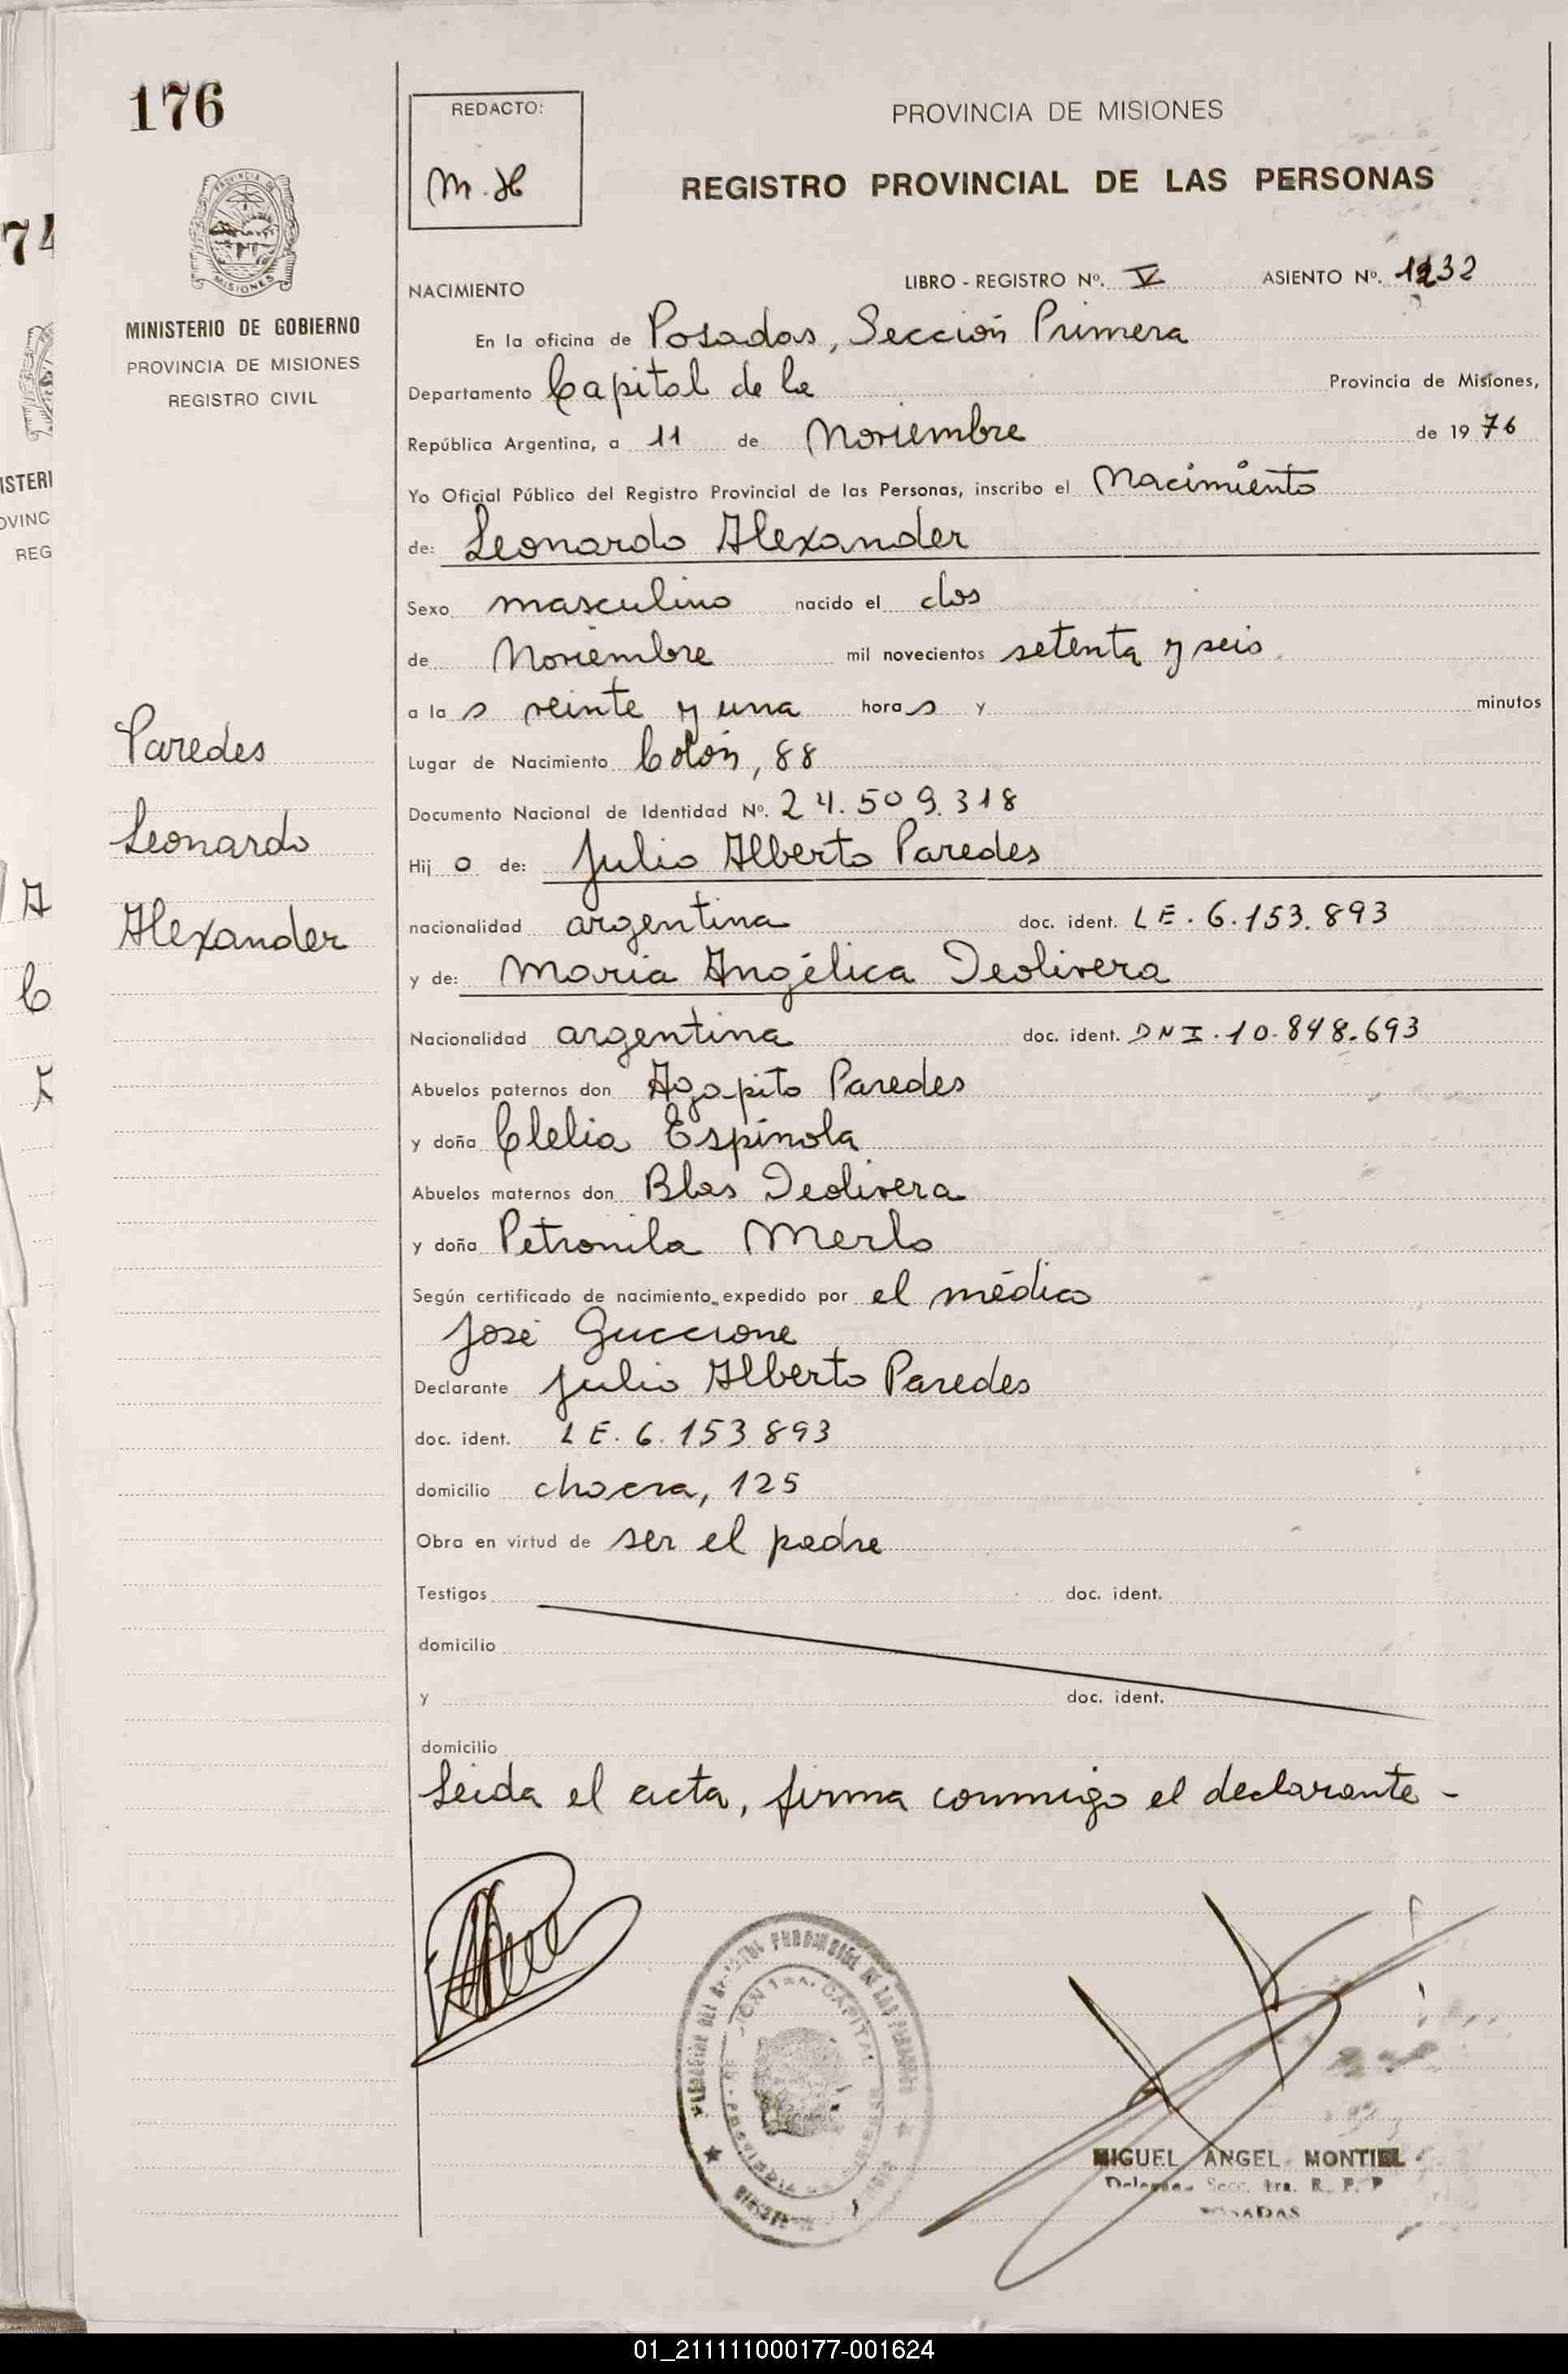 176
REDACTO:
M. H
PROVINCIA DE MISIONES
REGISTRO PROVINCIAL DE LAS PERSONAS
MINISTERIO DE GOBIERNO
PROVINCIA DE MISIONES
REGISTRO CIVIL
NACIMIENTO LIBRO - REGISTRO Nº. V ASIENTO Nº. 1232
En la oficina de Posadas, Sección Primera
Departamento Capital de la Provincia de Misiones,
República Argentina, a 11 de Noviembre de 1976
Yo Oficial Público del Registro Provincial de las Personas, inscribo el Nacimiento
de: Leonardo Alexander
Sexo masculino nacido el dos
de Noviembre mil novecientos setenta y seis
a la s veinte y una hora s y minutos
Paredes
Leonardo
Alexander
Lugar de Nacimiento Colón, 88
Documento Nacional de Identidad Nº. 24.509.318
Hij o de: Julio Alberto Paredes
nacionalidad argentina doc. ident. LE. 6.153.893
y de: Maria Angélica Deolivera
Nacionalidad argentina doc. ident. DNI. 10.848.693
Abuelos paternos don Agapito Paredes
y doña Clelia Espínola
Abuelos maternos don Blas Deolivera
y doña Petronila Merlo
Según certificado de nacimiento expedido por el médico
José Guccione
Declarante Julio Alberto Paredes
doc. ident. LE. 6.153.893
domicilio chacra, 125
Obra en virtud de ser el padre
Testigos doc. ident.
domicilio
y doc. ident.
domicilio
Leida el acta, firma conmigo el declarante -
MIGUEL ANGEL MONTIEL
Secc. 1ra. R. P. P
POSADAS
01_211111000177-001624